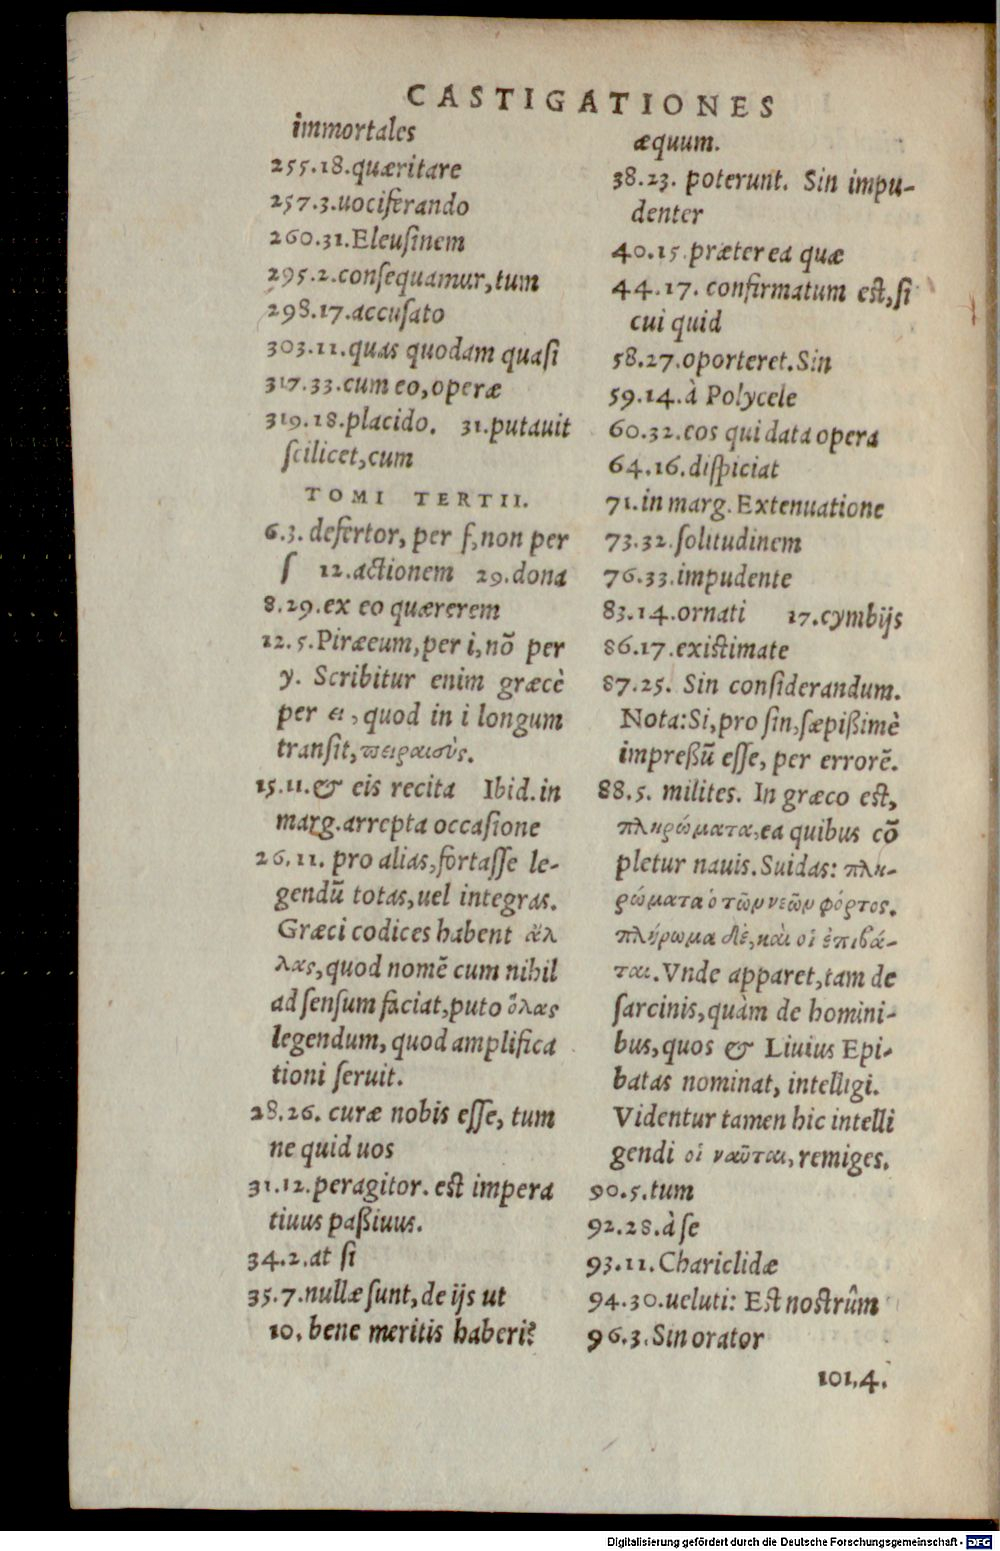 CASTIGATIONES
immortales
255.18.quæritare
257.3.uociferando
260.31.Eleuſinem
295.2.conſequamur,tum
298.17.accuſato
303.11.quas quodam quaſi
317.33.cum eo,operæ
319.18.placido. 31.putauit
ſcilicet,cum
TOMI TERTII.
6.3. defertor, per f,non per
ſ 12.actionem 29.dona
8.29.ex eo quærerem
12.5.Piræeum,per i,nõ per
y. Scribitur enim græcè
per ει, quod in i longum
tranſit, πειραιεὺς.
15.11.& eis recita Ibid.in
marg.arrepta occaſione
26.11. pro alias,fortaſſe le-
gendũ totas,uel integras.
Græci codices habent ἀλ
λας,quod nomẽ cum nihil
ad ſenſum faciat,puto ὅλας
legendum, quod amplifica
tioni ſeruit.
28.26. curæ nobis eſſe, tum
ne quid uos
31.12.peragitor. est impera
tiuus paßiuus.
34.2.at ſi
35.7.nullæ ſunt, de ijs ut
10. bene meritis haberi?
æquum.
38.23. poterunt. Sin impu-
denter
40.15.præter ea quæ
44.17. confirmatum est,ſi
cui quid
58.27.oporteret.Sin
59.14.à Polycele
60.32.eos qui data opera
64.16.diſpiciat
71.in marg.Extenuatione
73.32.ſolitudinem
76.33.impudente
83.14.ornati 17.cymbijs
86.17.existimate
87.25. Sin conſiderandum.
Nota:Si,pro ſin,ſæpißimè
impreßũ eſſe, per errorẽ.
88.5. milites. In græco est,
πληρώματα,ea quibus cõ
pletur nauis.Suidas: πλη-
ρώματα ὁ τῶν νεῶν φόρτος.
πλήρωμα δὲ, καὶ οἱ ἐπιβά-
ται.Vnde apparet,tam de
ſarcinis,quàm de homini-
bus,quos & Liuius Epi-
batas nominat, intelligi.
Videntur tamen hic intelli
gendi οἱ ναῦται, remiges.
90.5.tum
92.28.à ſe
93.11.Chariclidæ
94.30.ueluti: Est nostrûm
96.3.Sin orator
101.4.
Digitalisierung gefördert durch die Deutsche Forschungsgemeinschaft - DFG